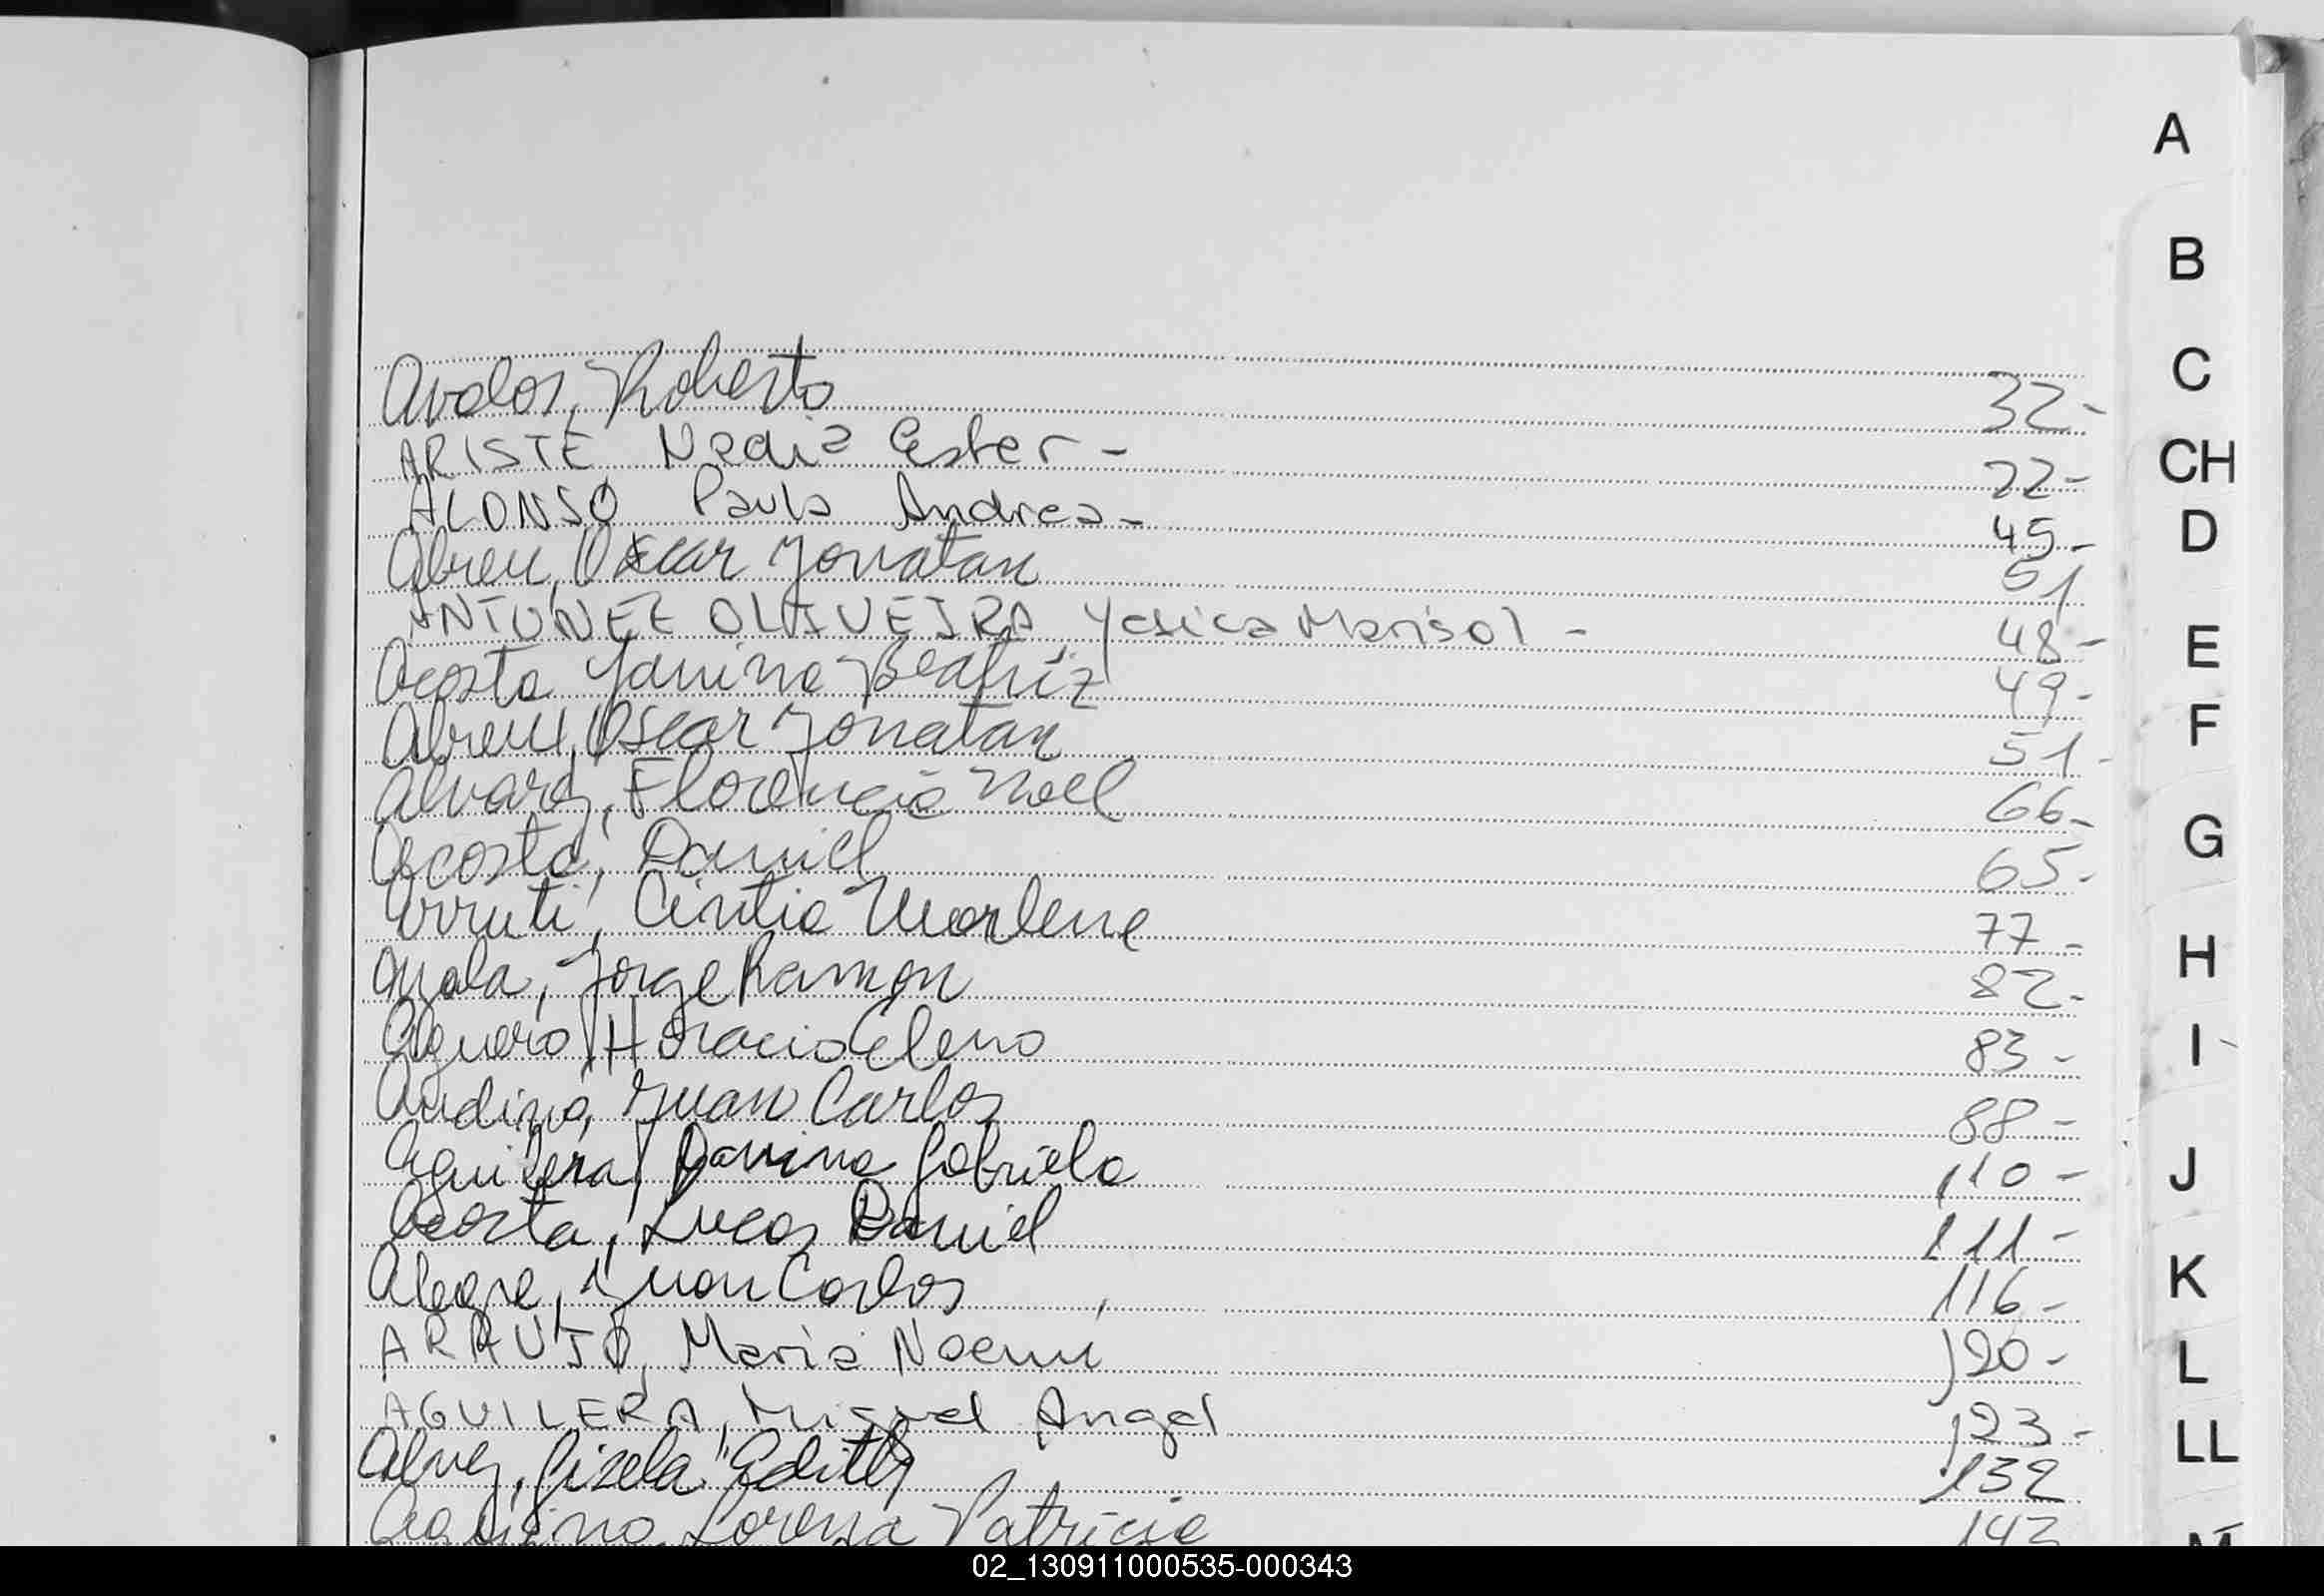 A
B
C
CH
D
E
F
G
H
I
J
K
L
LL
M
Avalos, Roberto 32-
ARISTE, Nadia Ester - 22-
ALONSO Paula Andrea - 45-
Abreu, Oscar Jonatan 51
ANTUNEZ OLIVEIRA, Yesica Marisol - 48-
Acosta Yanina Beatriz 49-
Abreu, Oscar Jonatan 51-
Alvarez, Florencia Noel 66-
Acosta, Daniel 65-
Arruti, Cintia Marlene 77-
Ayala, Jorge Ramon 82-
Aguero, Horacio Eleno 83-
Audino, Juan Carlos 88-
Aguilera, Yanina Gabriela 110-
Acosta, Lucas Daniel 111-
Alegre, Juan Carlos 116-
ARAUJO, Maria Noemi 120-
AGUILERA, Miguel Angel 123-
Alvez, Gizela "Edith 132
Aquino, Lorena Patricia 143
02_130911000535-000343